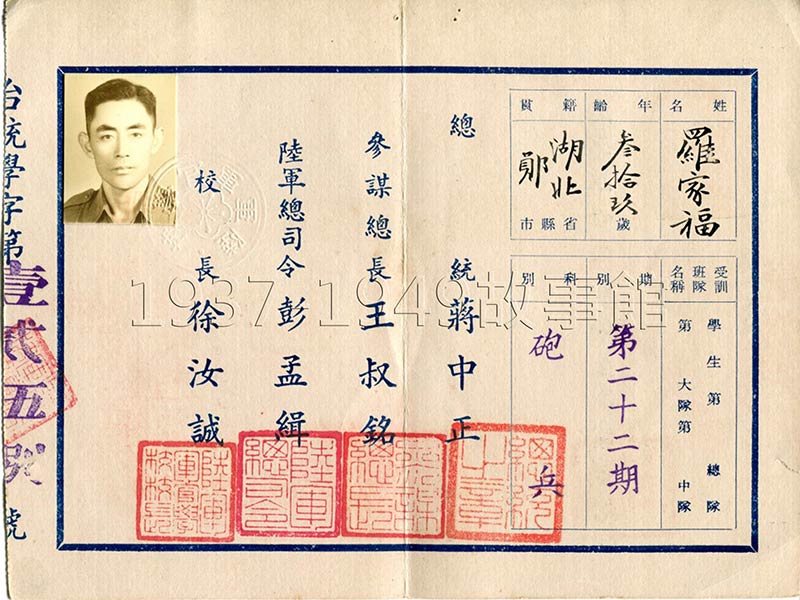 姓名
羅家福
年齡
叁拾玖
歲
籍貫
湖北
省
鄖
縣市
受訓班隊名稱
學生第 總隊
第 大隊第 中隊
期別
第二十二期
科別
砲兵
總統 蔣中正
參謀總長 王叔銘
陸軍總司令 彭孟緝
校長 徐汝誠
總統之章
陸軍總司令
陸軍官學校校長
台統學字第
壹貳五
號
1937 1949故事館